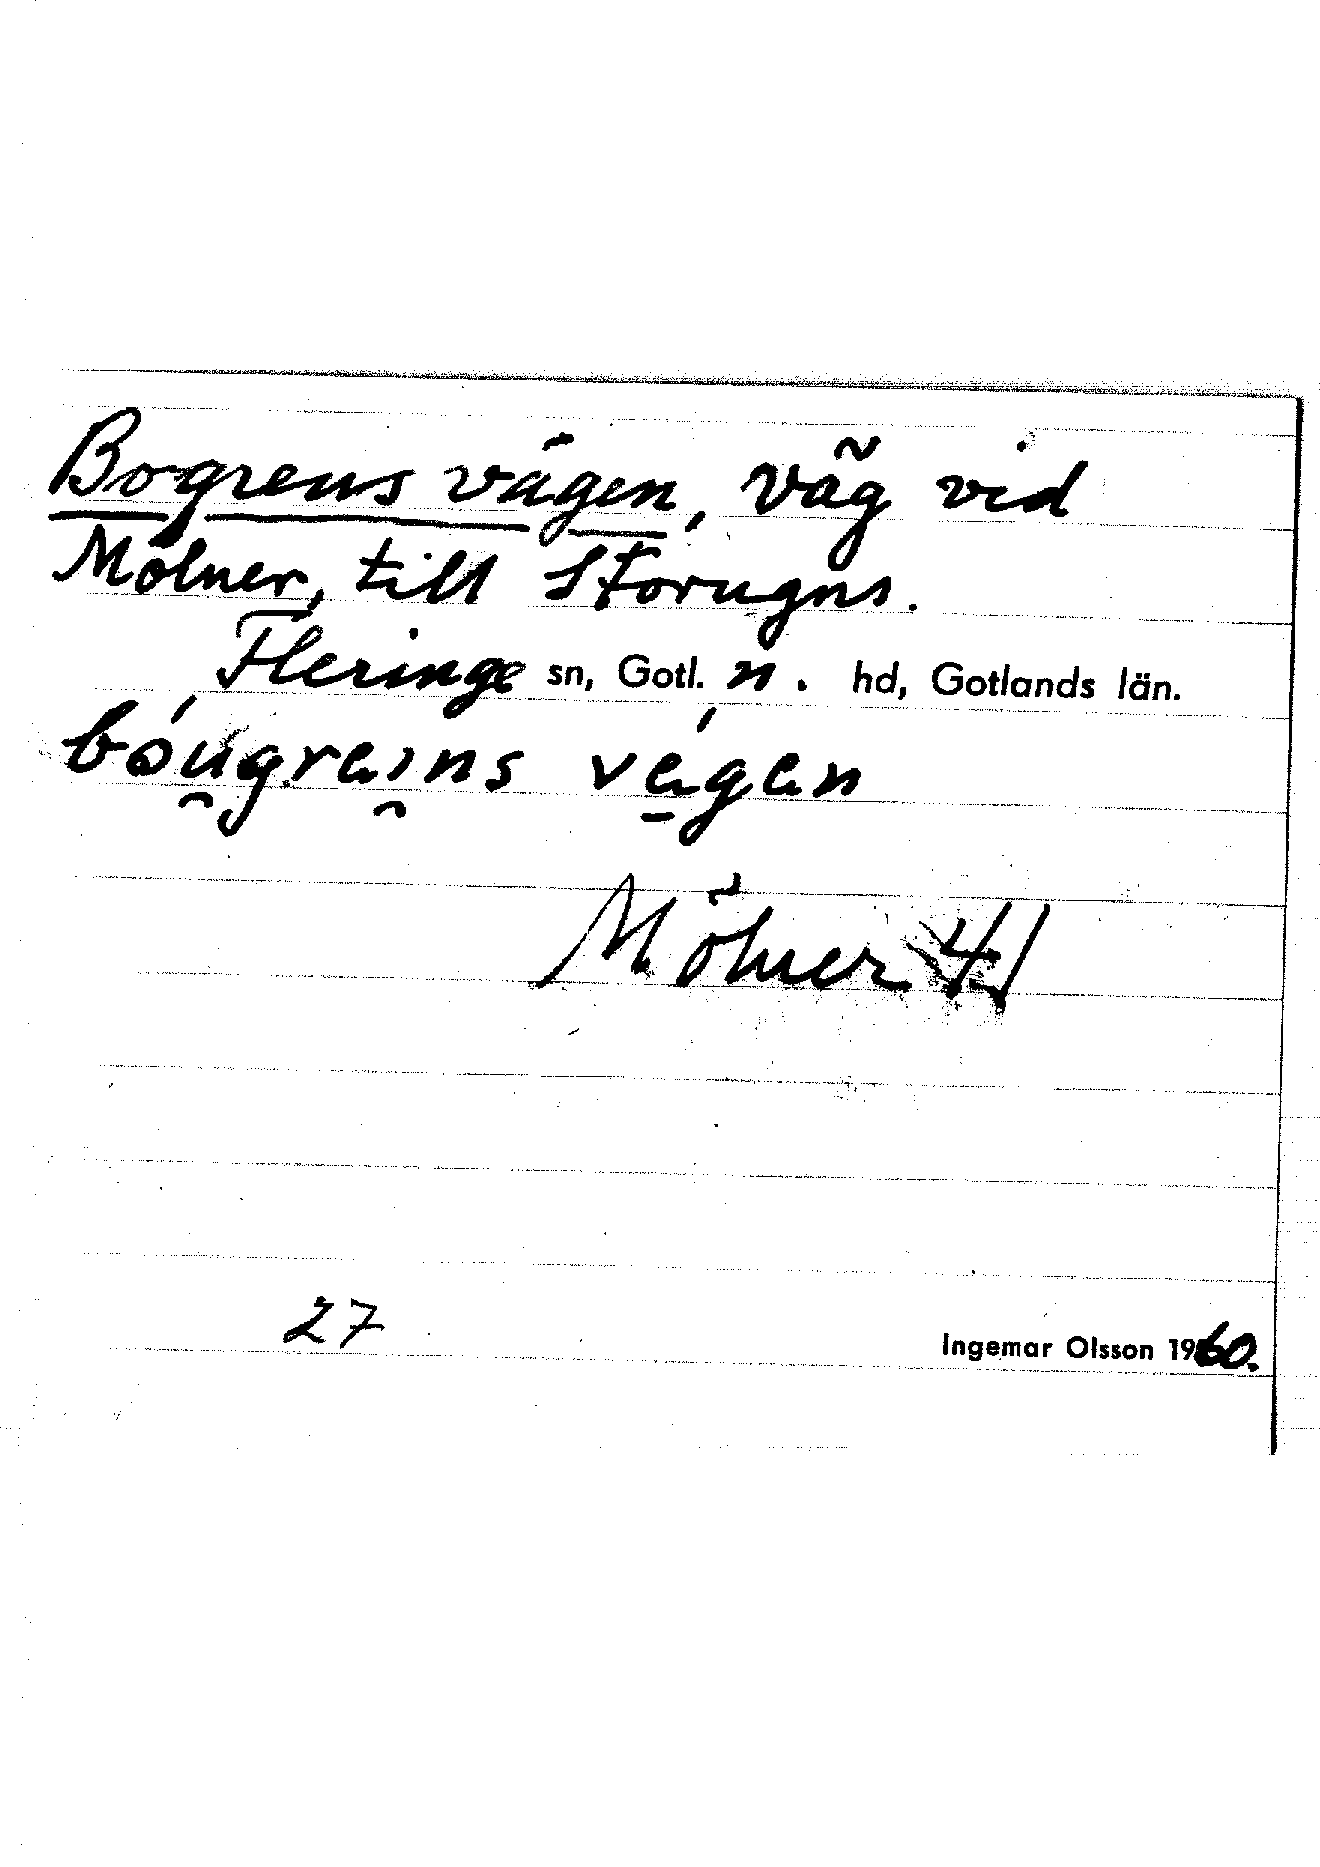 Bogrens vägen, väg vid
Mölner, till Storugns.
Fleringe sn, Gotl. n. hd, Gotlands län.
bóu̯grai̯ns vä́gän
Mölner 4/1
27
Ingemar Olsson 1960.